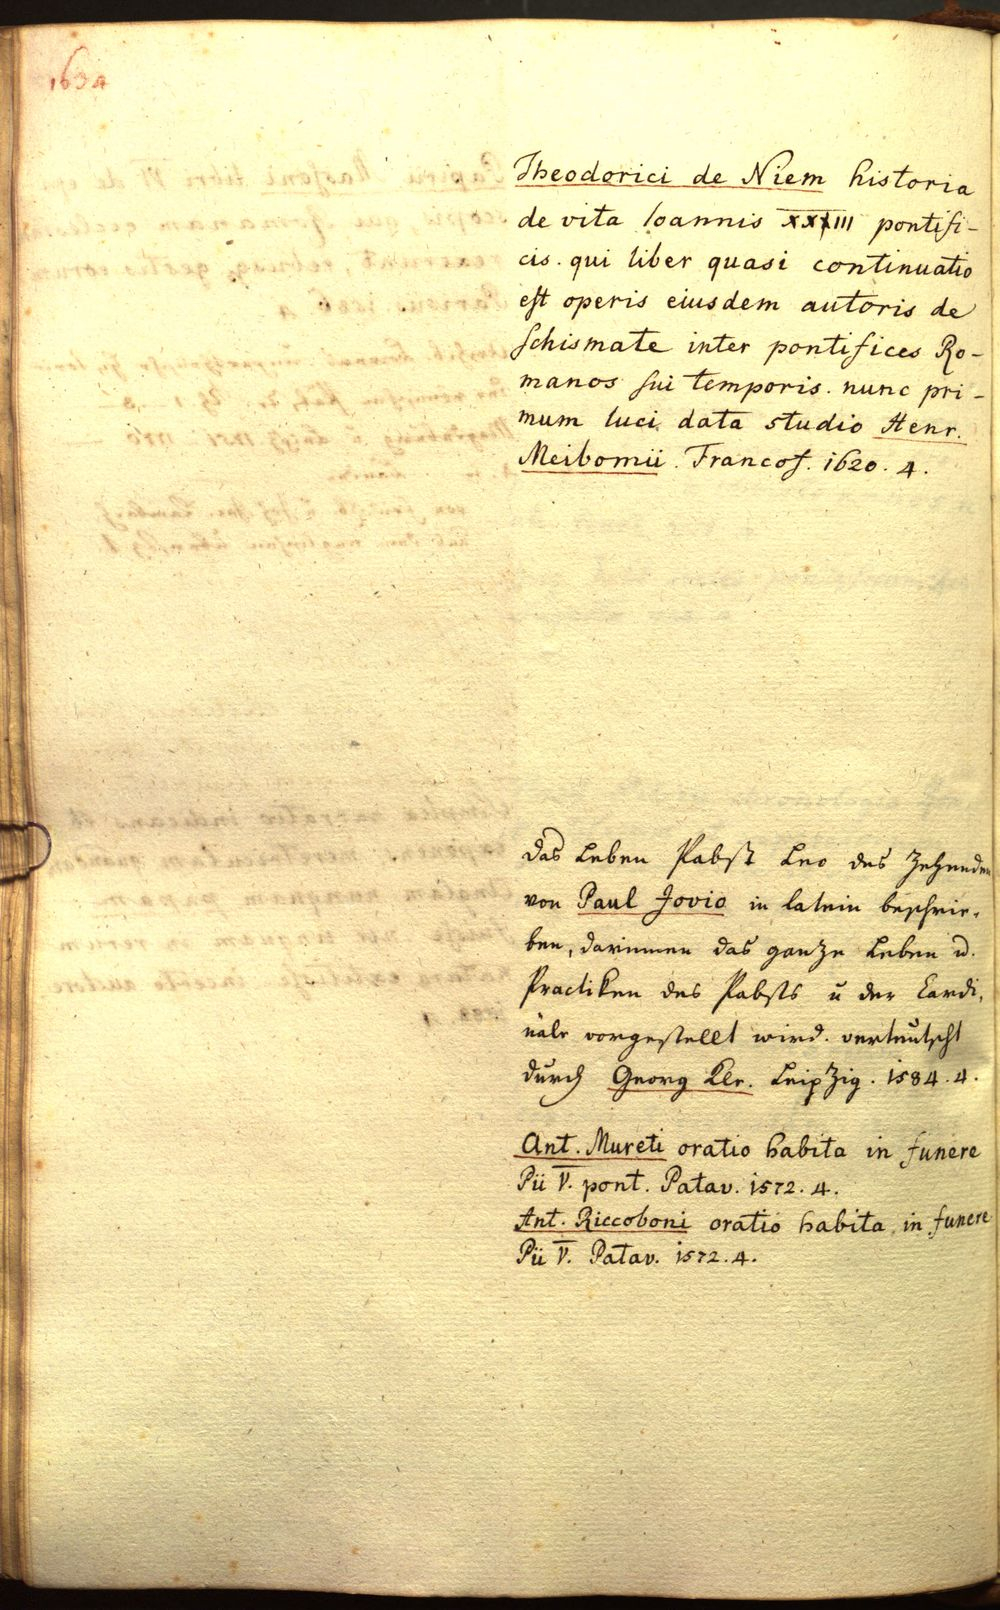 1634
Theodorici de Niem historia
de vita Ioannis XXIII pontifi-
cis. qui liber quasi continuatio
est operis eiusdem autoris de
schismate inter pontifices Ro-
manos sui temporis. nunc pri-
mum luci data studio Henr.
Meibomii. Francof. 1620. 4.
Das Leben Pabst Leo des Zehenden
von Paul Jovio in latein beschrie-
ben, darinnen das ganze Leben u.
Practiken des Pabsts u der Cardi-
näle vorgestellt wird. verteutscht
durch Georg Kle. Leipzig. 1584. 4.
Ant. Mureti oratio habita in funere
Pii V. pont. Patav. 1572. 4.
Ant. Riccoboni oratio habita in funere
Pii V. Patav. 1572. 4.